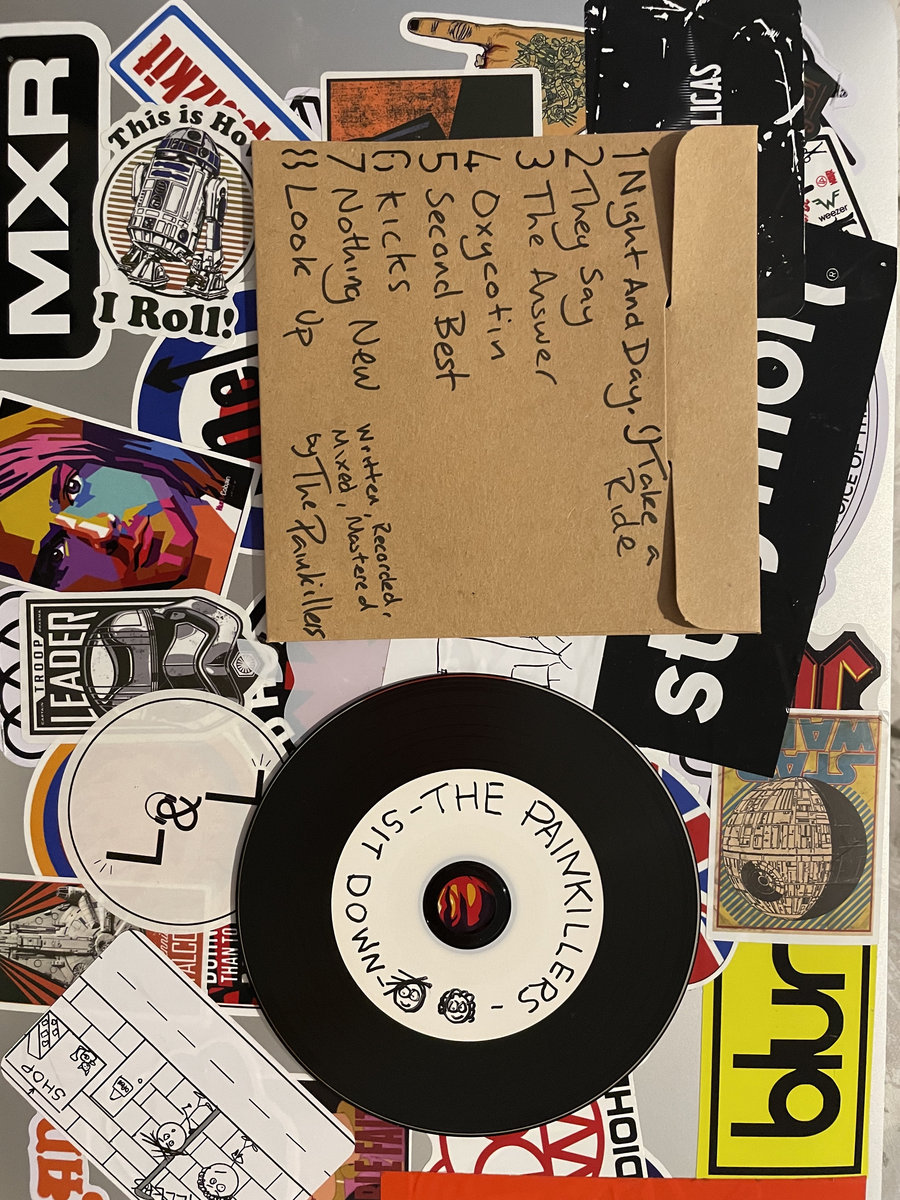 1 Night And Day. 9 Take a Ride
2 They Say
3 The Answer
4 Oxycotin
5 Second Best
6 Kicks
7 Nothing New
8 Look Up
Written, Recorded,
Mixed, Mastered
by The Painkillers
THE PAINKILLERS - SIT DOWN -
MXR
This is Ho
I Roll!
LICAS
weezer
TROOP
LEADER
L & L
STAR
WAR
blur
SHOP
THAN TO